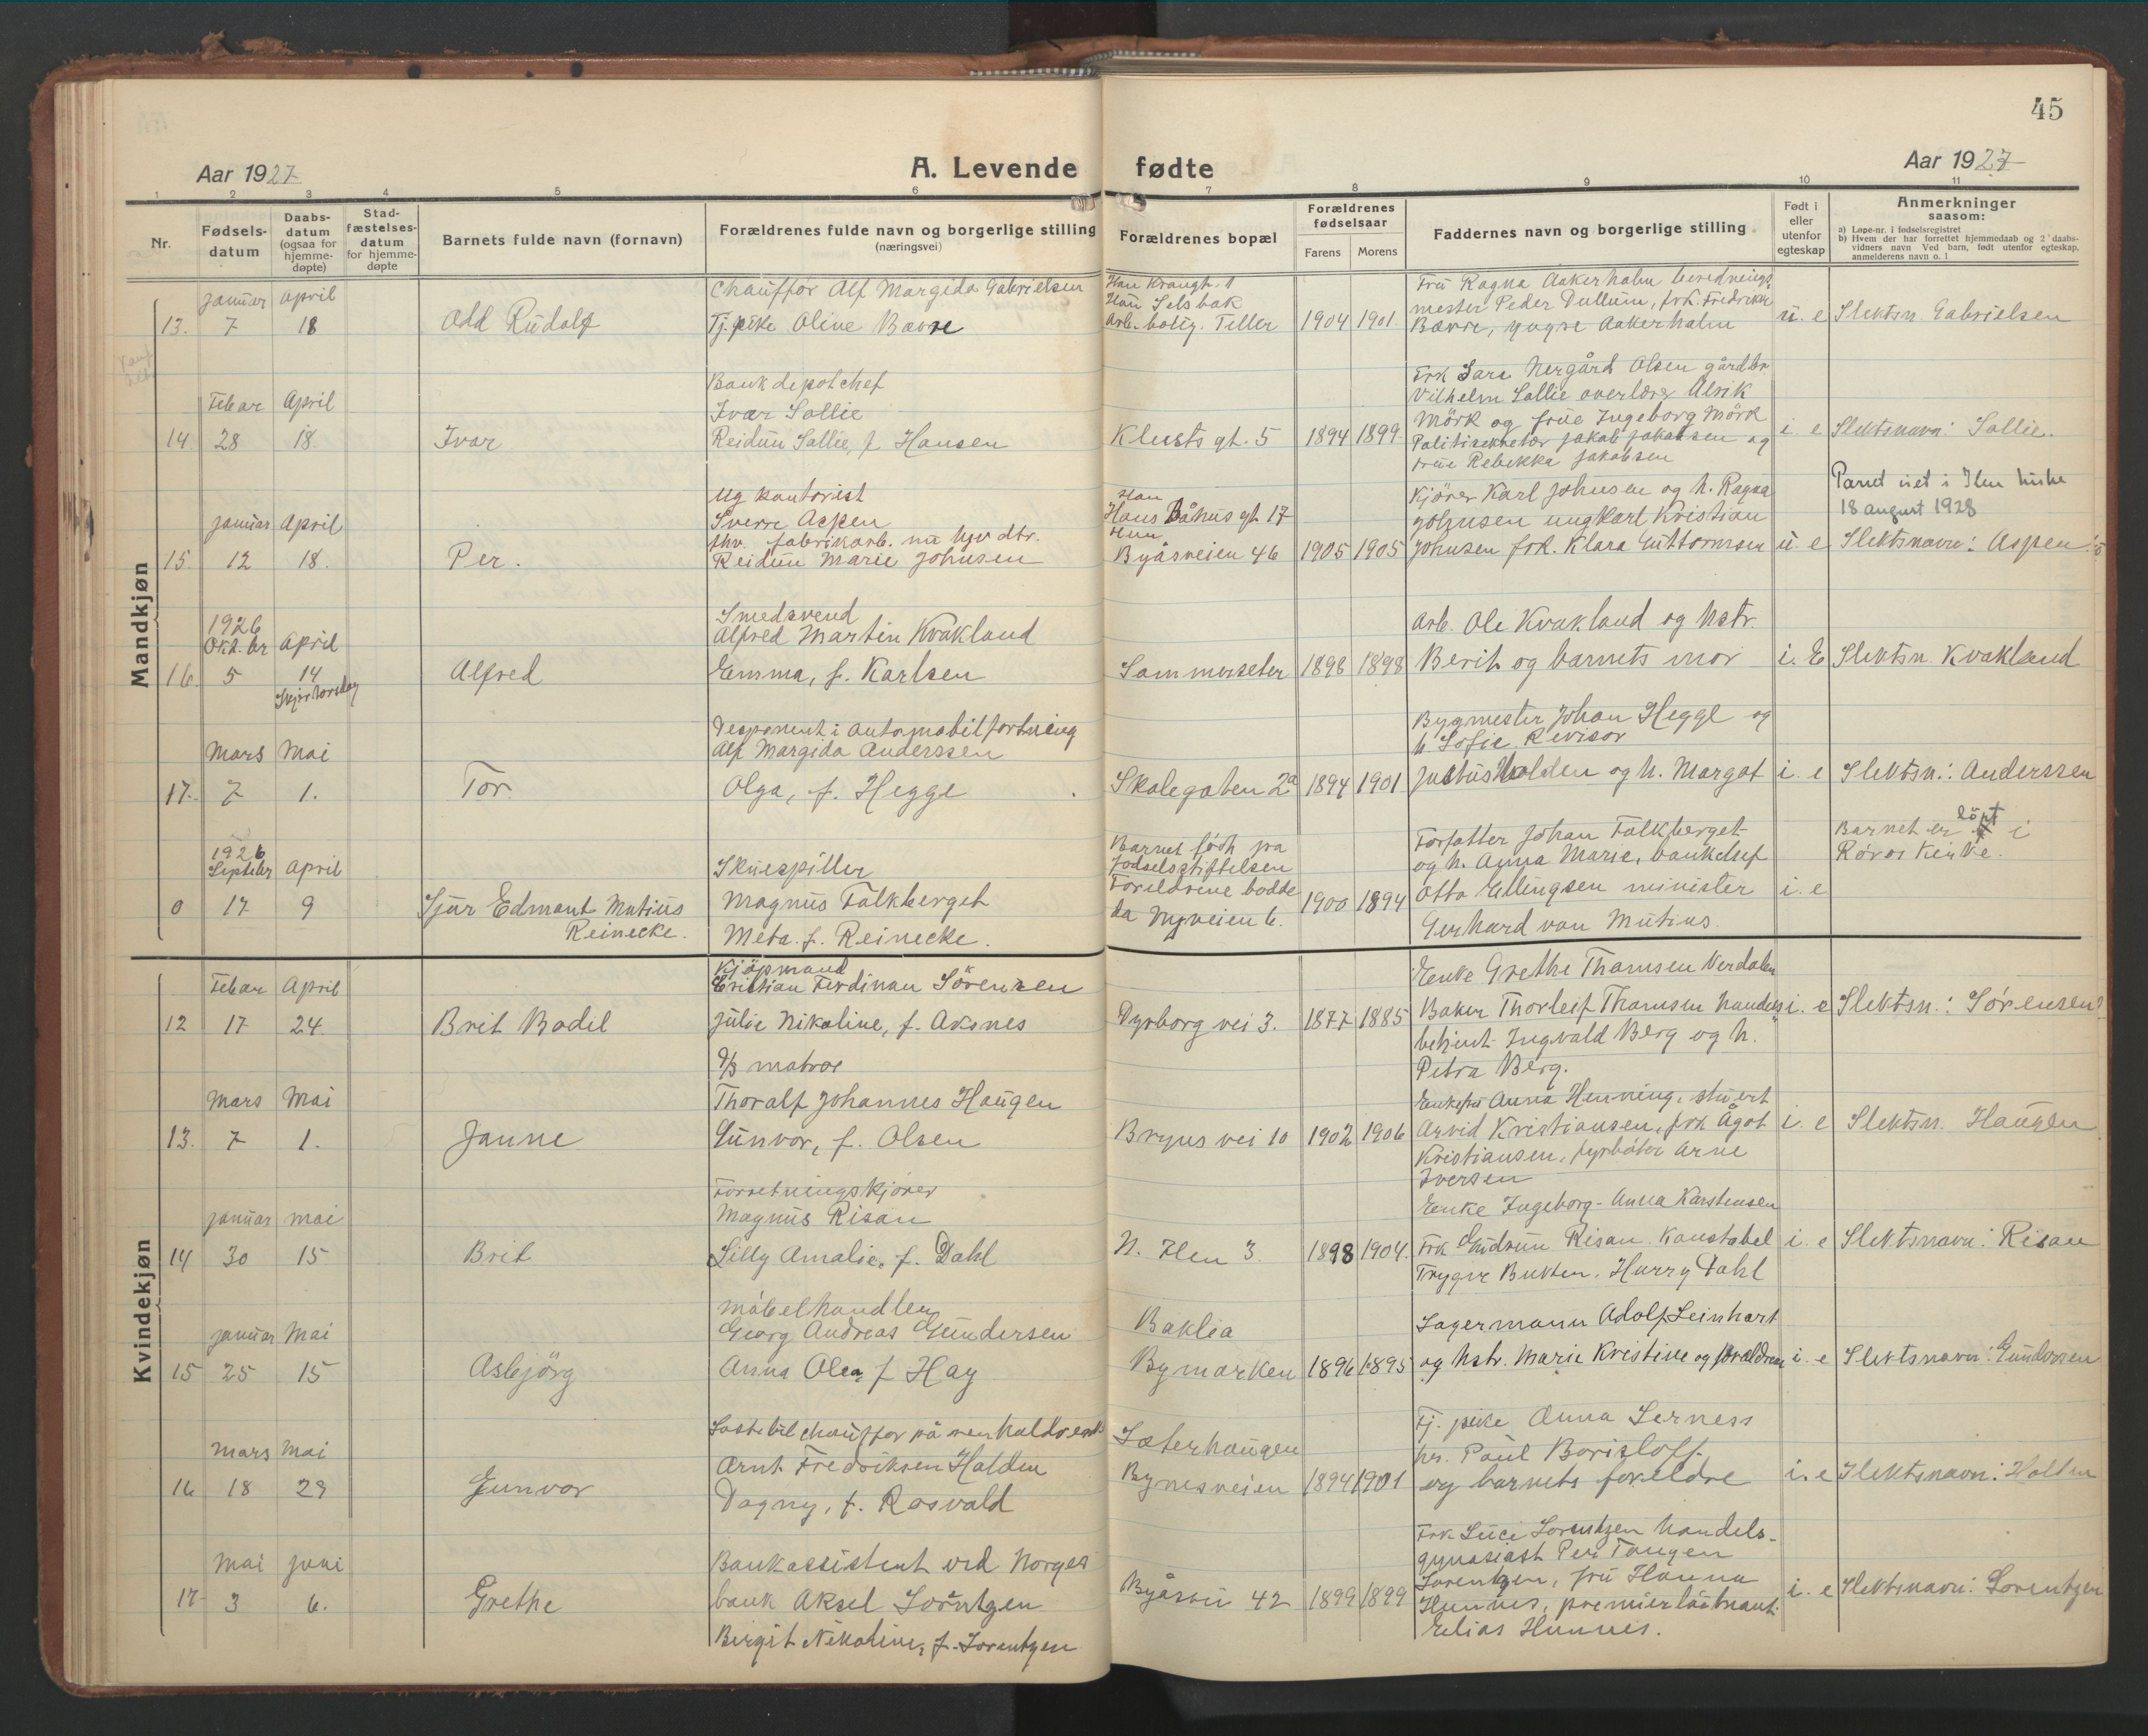 45
Aar 1927
A. Levende fødte
Aar 1927
1 2 3 4 5 6 7 8 9 10 11
Nr.
Fødsels-
datum
Daabs-
datum
(ogsaa for
hjemme-
døpte)
Stad-
fæstelses-
datum
for hjemme-
døpte
Barnets fulde navn (fornavn)
Forældrenes fulde navn og borgerlige stilling
(næringsvei)
Forældrenes bopæl
Forældrenes
fødselsaar
Farens Morens
Faddernes navn og borgerlige stilling
Født i
eller
utenfor
egteskap
Anmerkninger
saasom:
a) Løpe-nr. i fødselsregistret
b) Hvem der har forrettet hjemmedaab og 2 daabs-
vidners navn Ved barn, født utenfor egteskap,
anmelderens navn o. l
Mandkjøn
januar april
13. 7 18
Odd Rudolf
Chauffør Alf Margido Gabrielsen
Tj.pike Oline Bævre
Han Kraugh. 1
Hun Selsbak
Arb. bolig. Tiller
1904 1901
Frú Ragna Aakerholm berednings
mester Peder Dullum, frk. Fredrikke
Bævre, yngre Aakerholm
u. e
Slektsn. Gabrielsen
Febar April
14 28 18.
Ivar
Bankdepotchef
Ivar Sollie
Reidun Sollie, f. Hansen
Klusts gt. 5
1894 1899
Frk Sara Nergård Olsen gårdbr.
Vilhelm Sollie overlærer Alrik
Mörk og frue Ingeborg Mörk
Politisekretær Jakob Jakobsen og
frue Rebekka Jakobsen
i e
Slektsnavn: Sollie.
januar April
15 12 18.
Per.
Ug kontorist
Sverre Aspen
fhv. fabrikarb. nu hjv dtr.
Reidun Marie Johnsen
Han
Hans Båhus gt 17
Hun
Byåsveien 46
1905 1905
Kjører Karl Johnsen og h. Ragna
Johnsen ungkarl Kristian
Johnsen frk. Klara Guttormsen
u. e
Paret viet i Ilen kirke
18 august 1928
Slektsnavn: Aspen
1926
Okt.br April
16 5 14
Skjærtorsdag
Alfred
Smedsvend
Alfred Martin Kvakland
Emma, f. Karlsen
Sommerseter
1898 1898
Arb. Ole Kvakland og hstr.
Berit og barnets mor
i. E
Slektsn. Kvakland
Mars Mai
17. 7 1.
Tor.
Desponent i automobilforretning
Alf Margido Anderssen
Olga, f. Hegge
Skolegaten 2a
1894 1901
Bygmester Johan Hegge og
h. Sofie Revisor
Justus Holden og h. Margot
i. e
Slektsn.: Anderssen
1926
Septebr April
0 17 9
Sjur Edmont Mutius
Reinecke.
Skuespiller
Magnus Falkberget
Meta. f. Reinecke.
Barnet födt på
Fødselsstiftelsen
Foreldrene bodde
da Nyveien 6.
1900 1894
Forfatter Johan Falkberget
og h. Anna Marie, bankchef
Otto Ellingsen minister
Gerhard von Mutius
i. e
Barnet er löpt i
Røros kirke.
Kvindekjøn
Febar April
12 17 24.
Brit Bodil
Kjöpmand
Cristian Ferdinan Sörensen
Julie Nikoline, f. Aksnes
Dyrborg vei 3.
1877 1885
Enke Grethe Thomsen Verdalen
Baker Thorleif Thomsen handels
betjent Ingvald Berg og h.
Petra Berg.
i. e
Slektsn.: Sörensen
Mars Mai
13. 7 1.
Janne
D/S matros
Thoralf Johannes Haugen
Gunvor, f. Olsen
Bryns vei 10
1902 1906
Enkefru Anna Henning, stuert
Arvid Kristiansen, frk Ågot
Kristiansen, fyrbøter Arne
Iversen
i. e
Slektsn. Haugen
januar mai
14 30 15
Brit
Forretningskjører
Magnus Risan
Lilly Amalie, f. Dahl
N. Ilen 3.
1898 1904.
Enke Ingeborg-Anna Karstensen
Frk Gudrun Risan. Konstabel
Trygve Bukten. Harry Dahl
i. e
Slektsnavn: Risan
januar Mai
15 25 15
Asbjörg
Möbelhandler
Georg Andreas Gundersen
Anna Olea, f Hay
Baklia
Bymarken
1896 1895
Lagermann Adolf Leinhart
og hstr. Marie Kristine og foreldrene
i. e
Slektsnavn: Gundersen
mars Mai
16 18 29
Gunvor
Lastebilchauffør
Arnt Fredriksen Holden
Dagny, f. Rosvald
Sæterhaugen
Bynesveien
1894 1901
Tj. pike Anna Lerness
hr. Paul Borisloff
og barnets foreldre
i. e
Slektsnavn: Holden
mai juni
17 3 6.
Grethe
Bankassistent ved Norges
bank Aksel Lorentzen
Birgit Nikoline, f. Lorentzen
Byåsvei 42
1899 1899
Frk Luci Lorentzen handels-
gymnasiast Per Tangen
Lorentzen, fru Hanna
Hunnes, premierløitnant
Elias Hunnes.
i. e
Slektsnavn: Lorentzen